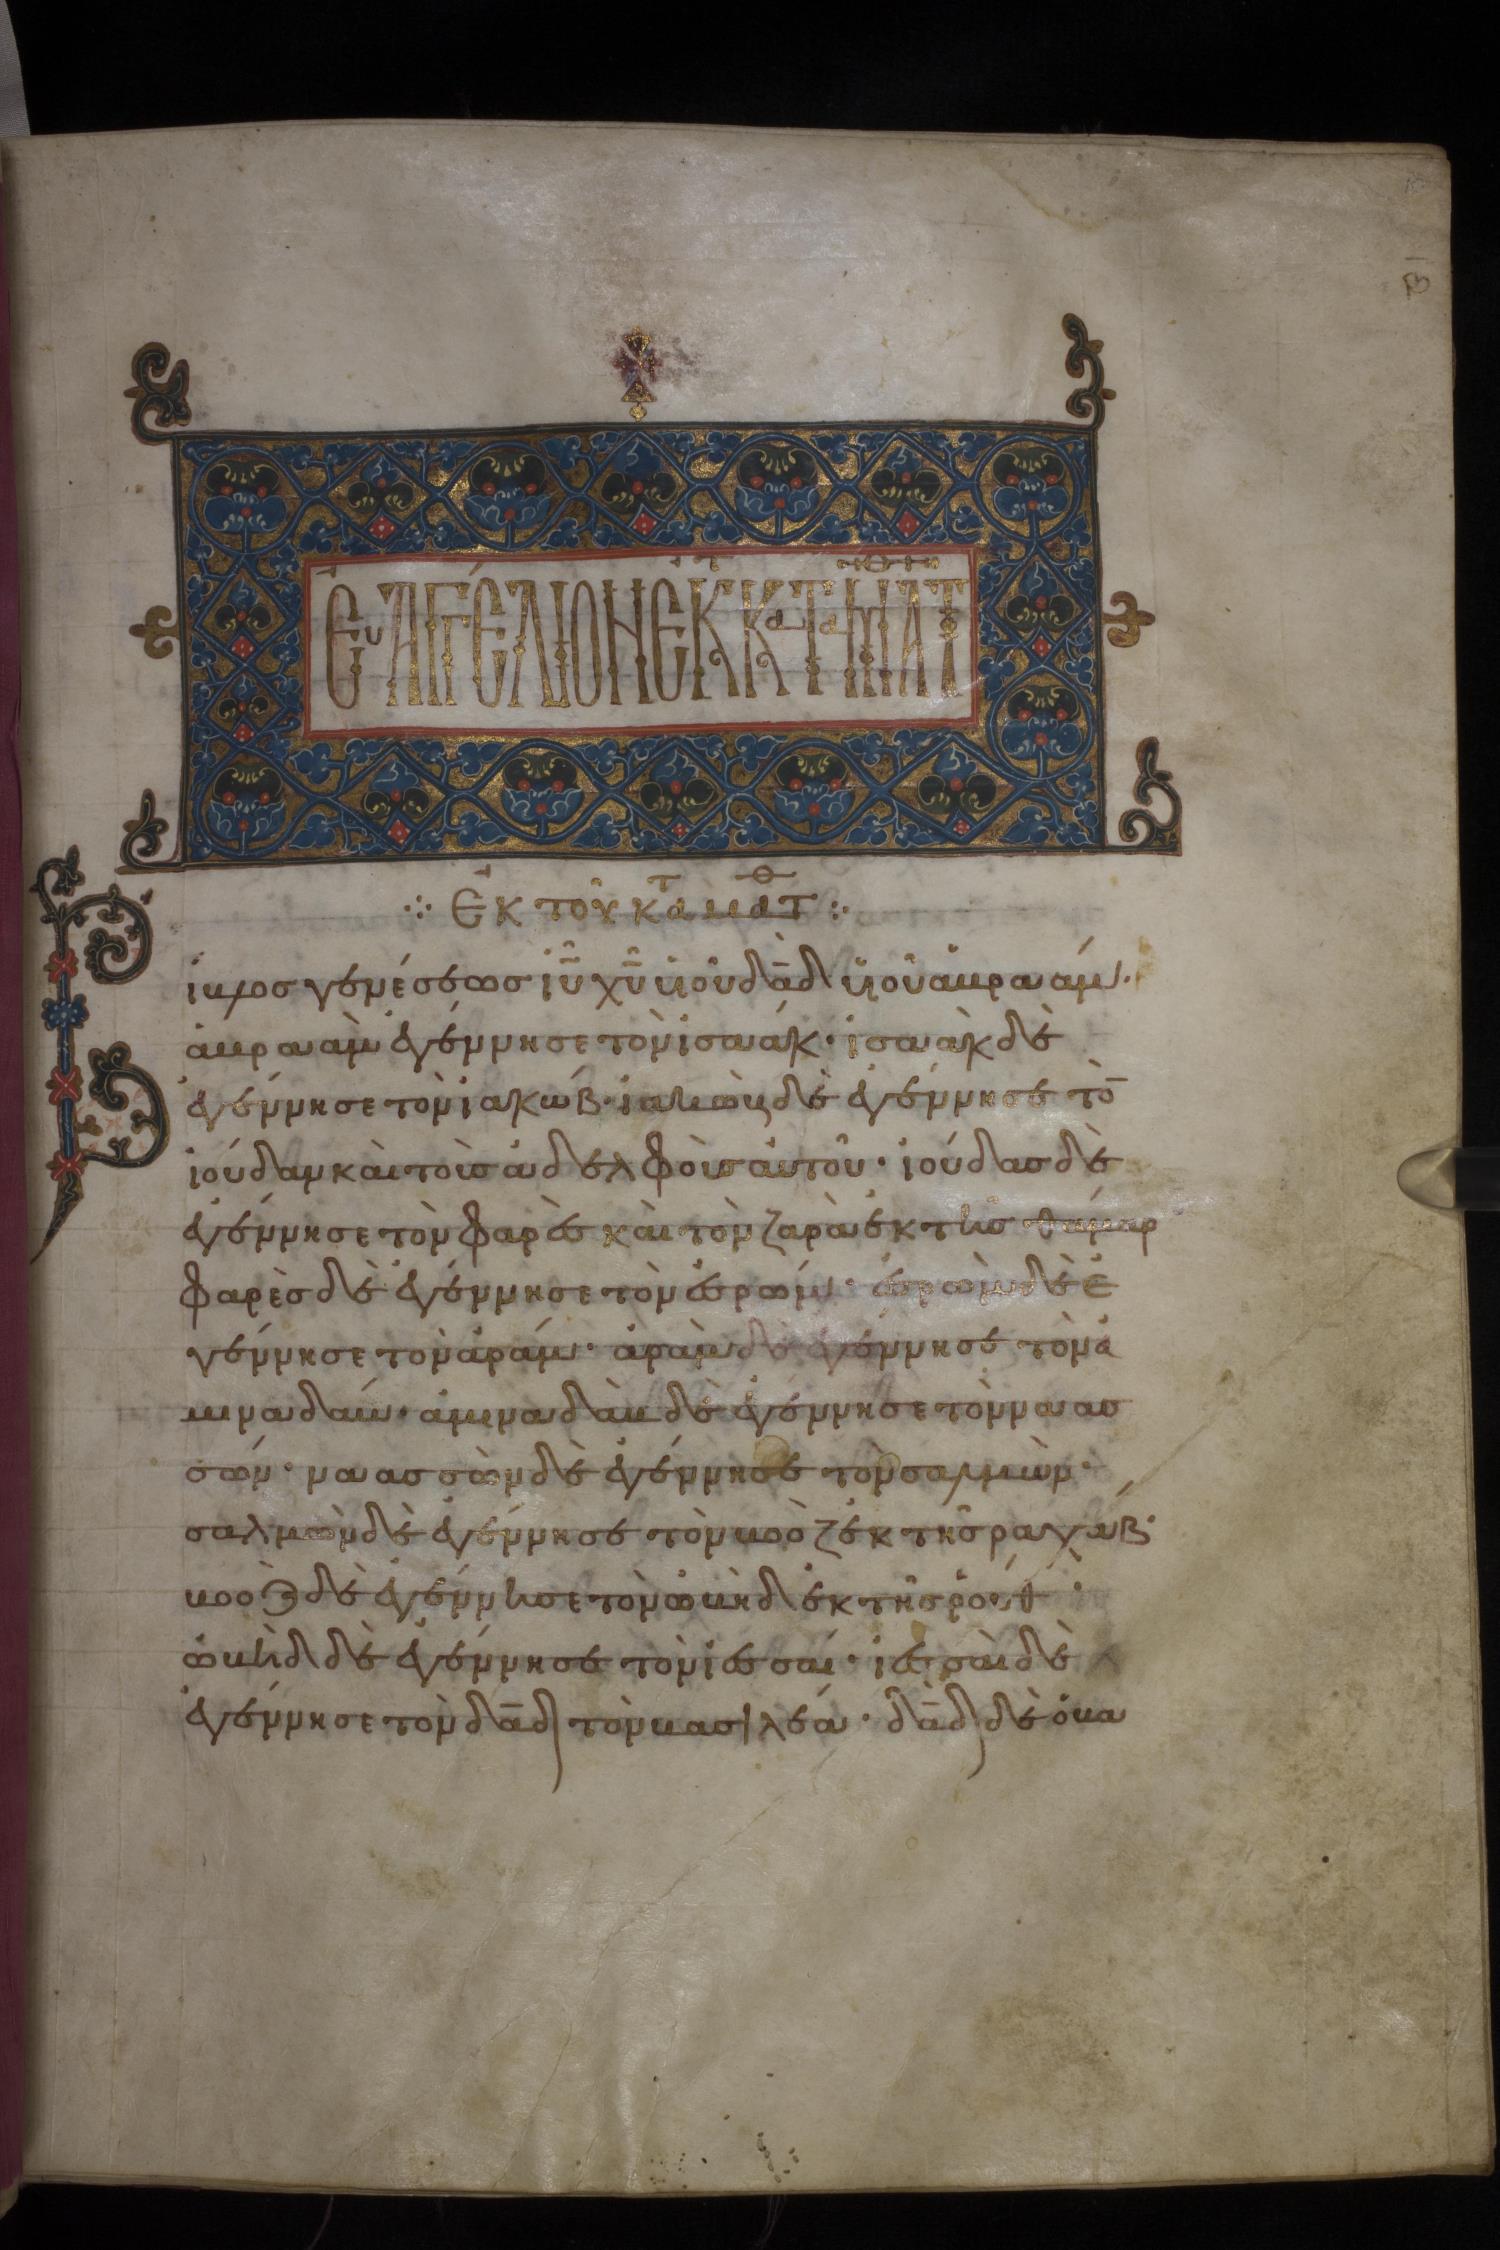 β
ΕυΑΓΓΕΛΙΟΝ ΕΚ Κ ΚαΤα ΜΑΤΘ
Ἐκ τοῦ κατὰ Ματθ
Βίβλος γενέσεως ἰῦ χῦ υἱοῦ δᾱδ υἱοῦ ἀβραάμ·
ἀβραὰμ ἐγέννησε τὸν ἰσαάκ· ἰσαὰκ δὲ
ἐγέννησε τὸν ἰακώβ· ἰακὼβ δὲ ἐγέννησε τὸ̄
ἰούδαν καὶ τοὺς ἀδελφοὺς αὐτοῦ· ἰούδας δὲ
ἐγέννησε τὸν φαρὲς καὶ τὸν ζαρὰ ἐκ τῆς θάμαρ
φαρὲς δὲ ἐγέννησε τὸν ἐσρώμ· ἐσρὼμ δὲ ἐ
γέννησε τὸν ἀράμ· ἀρὰμ δὲ ἐγέννησε τὸν ἀ
μιναδάμ· ἀμιναδὰμ δὲ ἐγέννησε τὸν ναασ
σών· ναασσὼν δὲ ἐγέννησε τὸν σαλμών·
σαλμὼν δὲ ἐγέννησε τὸν βοὸζ ἐκ τῆς ραχάβ·
βοὸζ δὲ ἐγέννησε τὸν ὠβὴδ ἐκ τῆς ῥούθ·
ὠβὴδ δὲ ἐγέννησε τὸν ἰεσσαί· ἰεσσαὶ δὲ
ἐγέννησε τὸν δᾱδ τὸν βασιλέα· δᾱδ δὲ ὁ βα